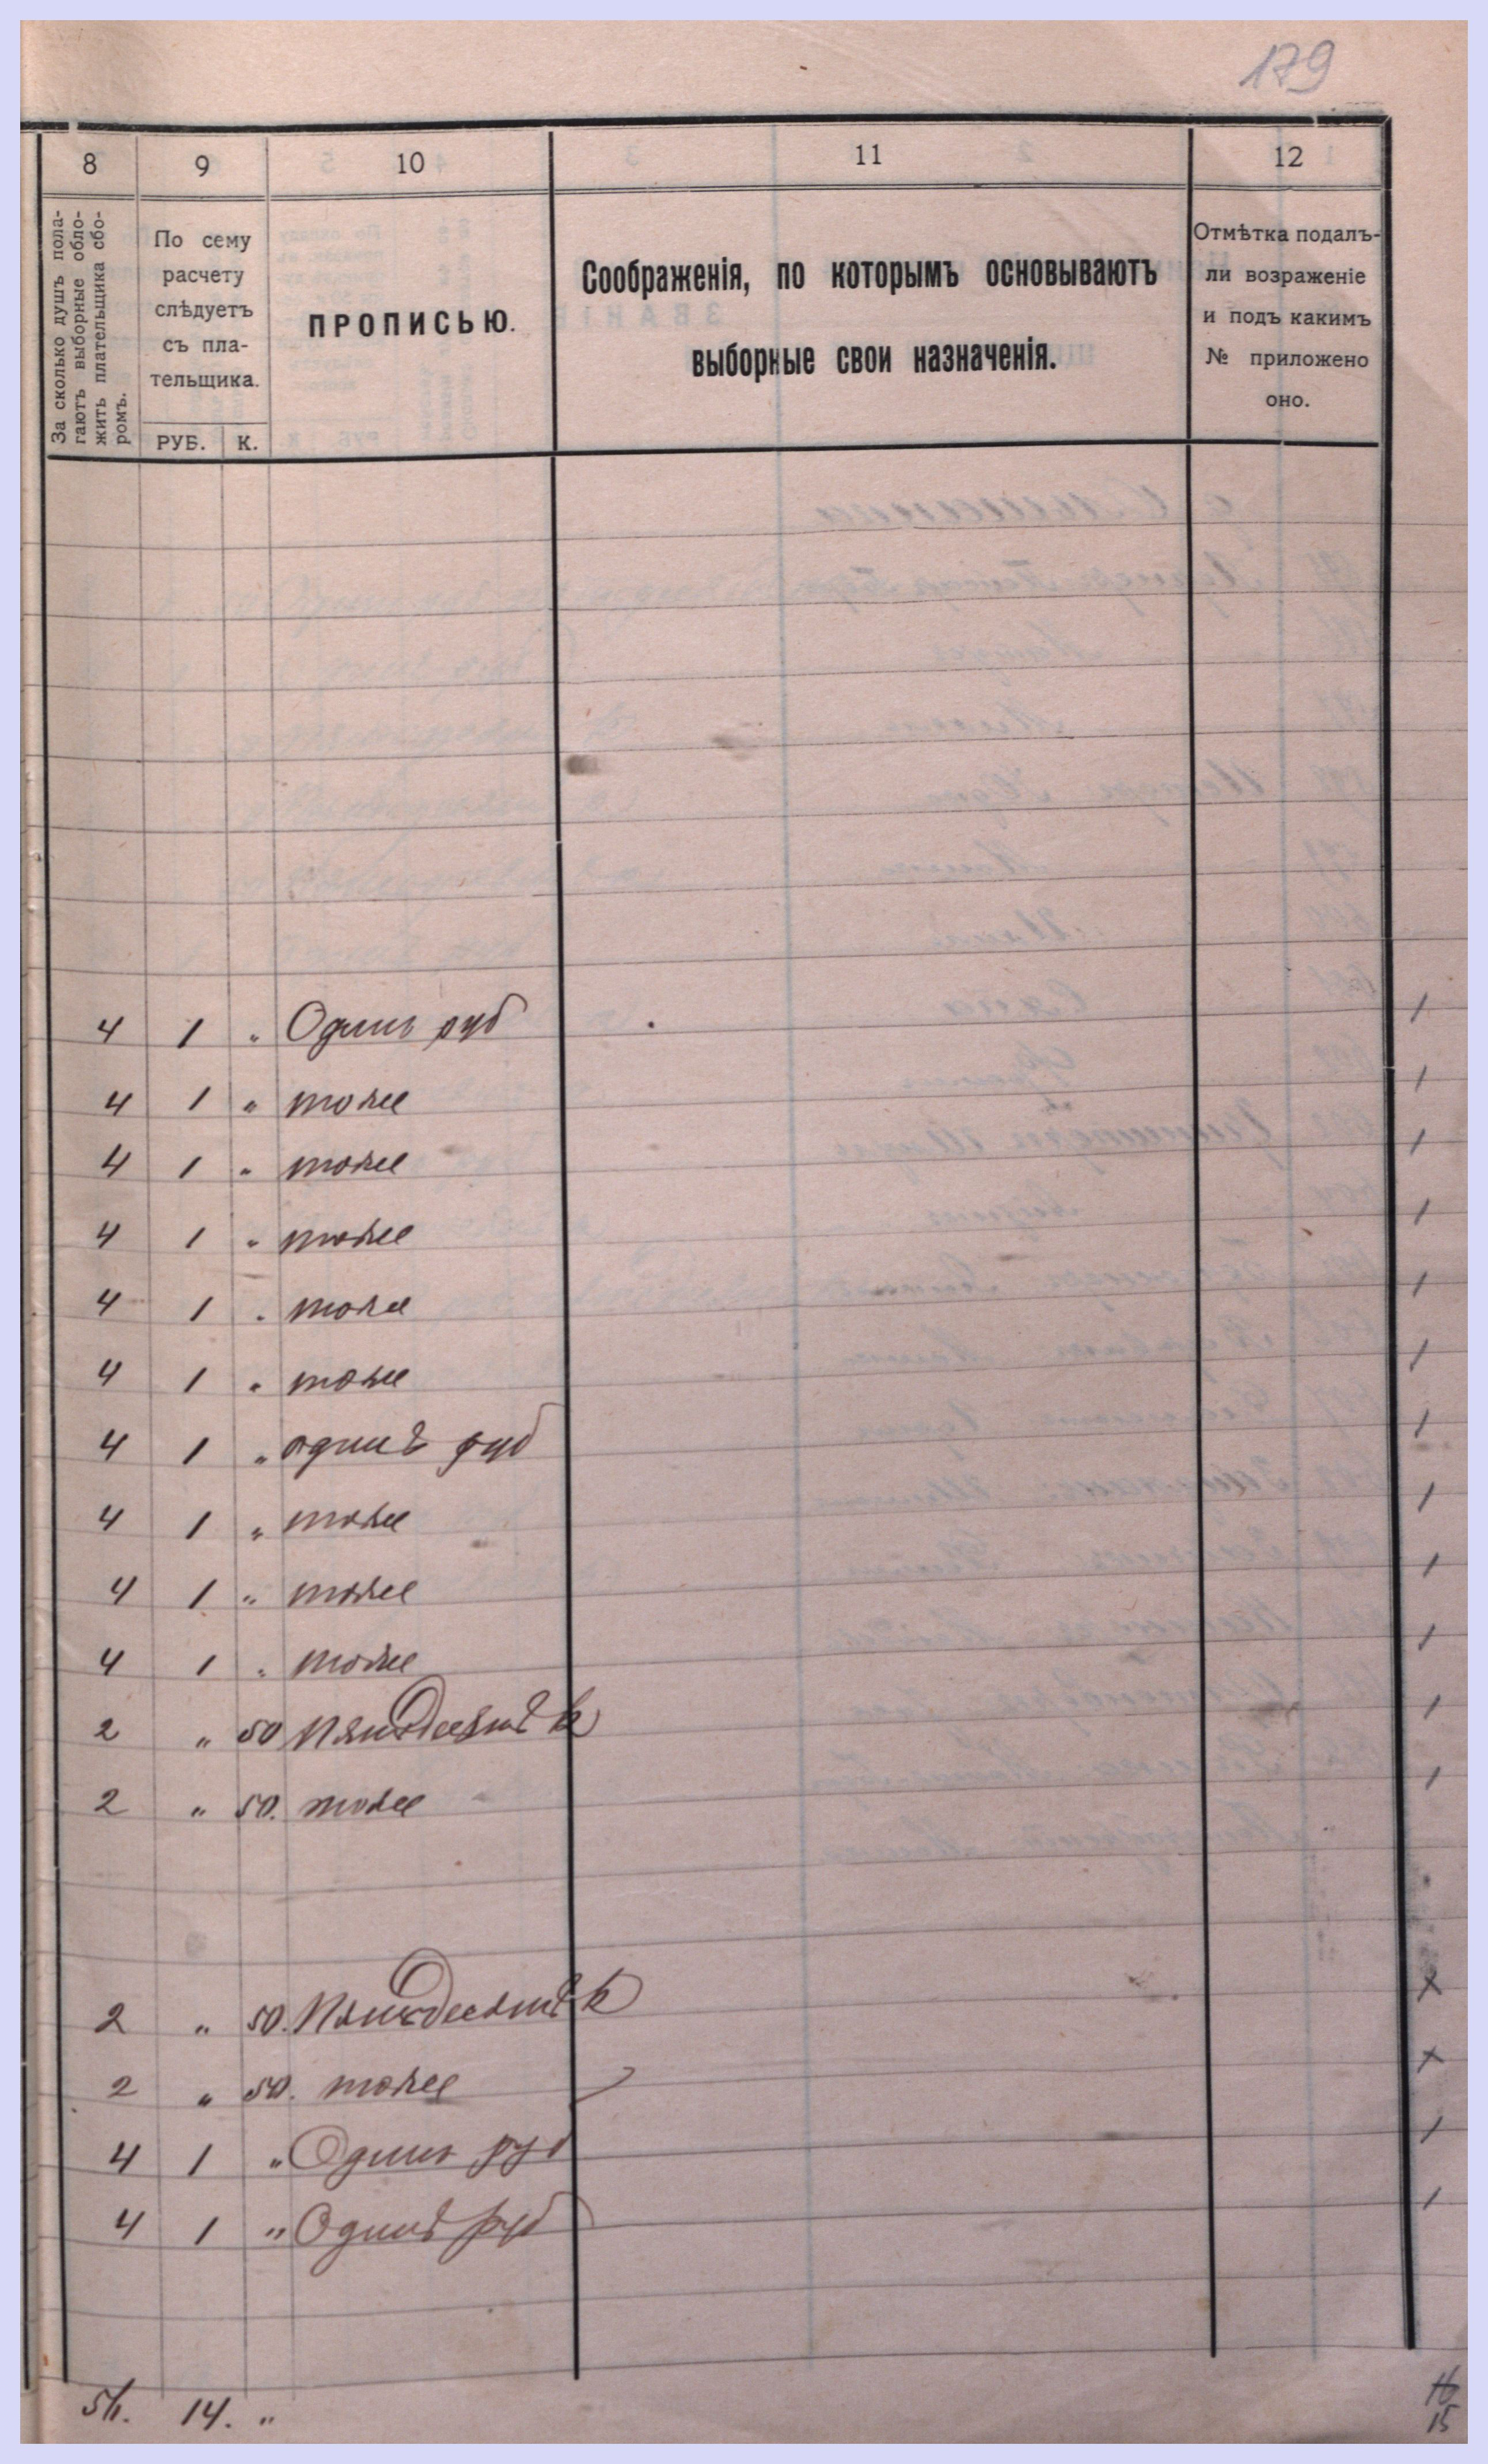 179
8 9 10 11 12
За сколько душъ пола-
гаютъ выборные обло-
жить плательщика сбо-
ромъ.
По сему
расчету
слѣдуетъ
съ пла-
тельщика.
РУБ. К.
ПРОПИСЬЮ.
Соображенія, по которымъ основываютъ
выборные свои назначенія.
Отмѣтка подалъ-
ли возраженіе
и подъ какимъ
№ приложено
оно.
4 1 " Одинъ руб /
4 1 " тоже /
4 1 " тоже /
4 1 " тоже /
4 1 " тоже /
4 1 " тоже /
4 1 " одинъ руб /
4 1 " тоже /
4 1 " тоже /
4 1 " тоже /
2 " 50 Пятьдесятъ к /
2 " 50. тоже /
2 " 50. Пятьдесятъ к x
2 " 50. тоже x
4 1 " Одинъ руб /
4 1 " Одинъ руб /
14. "
15